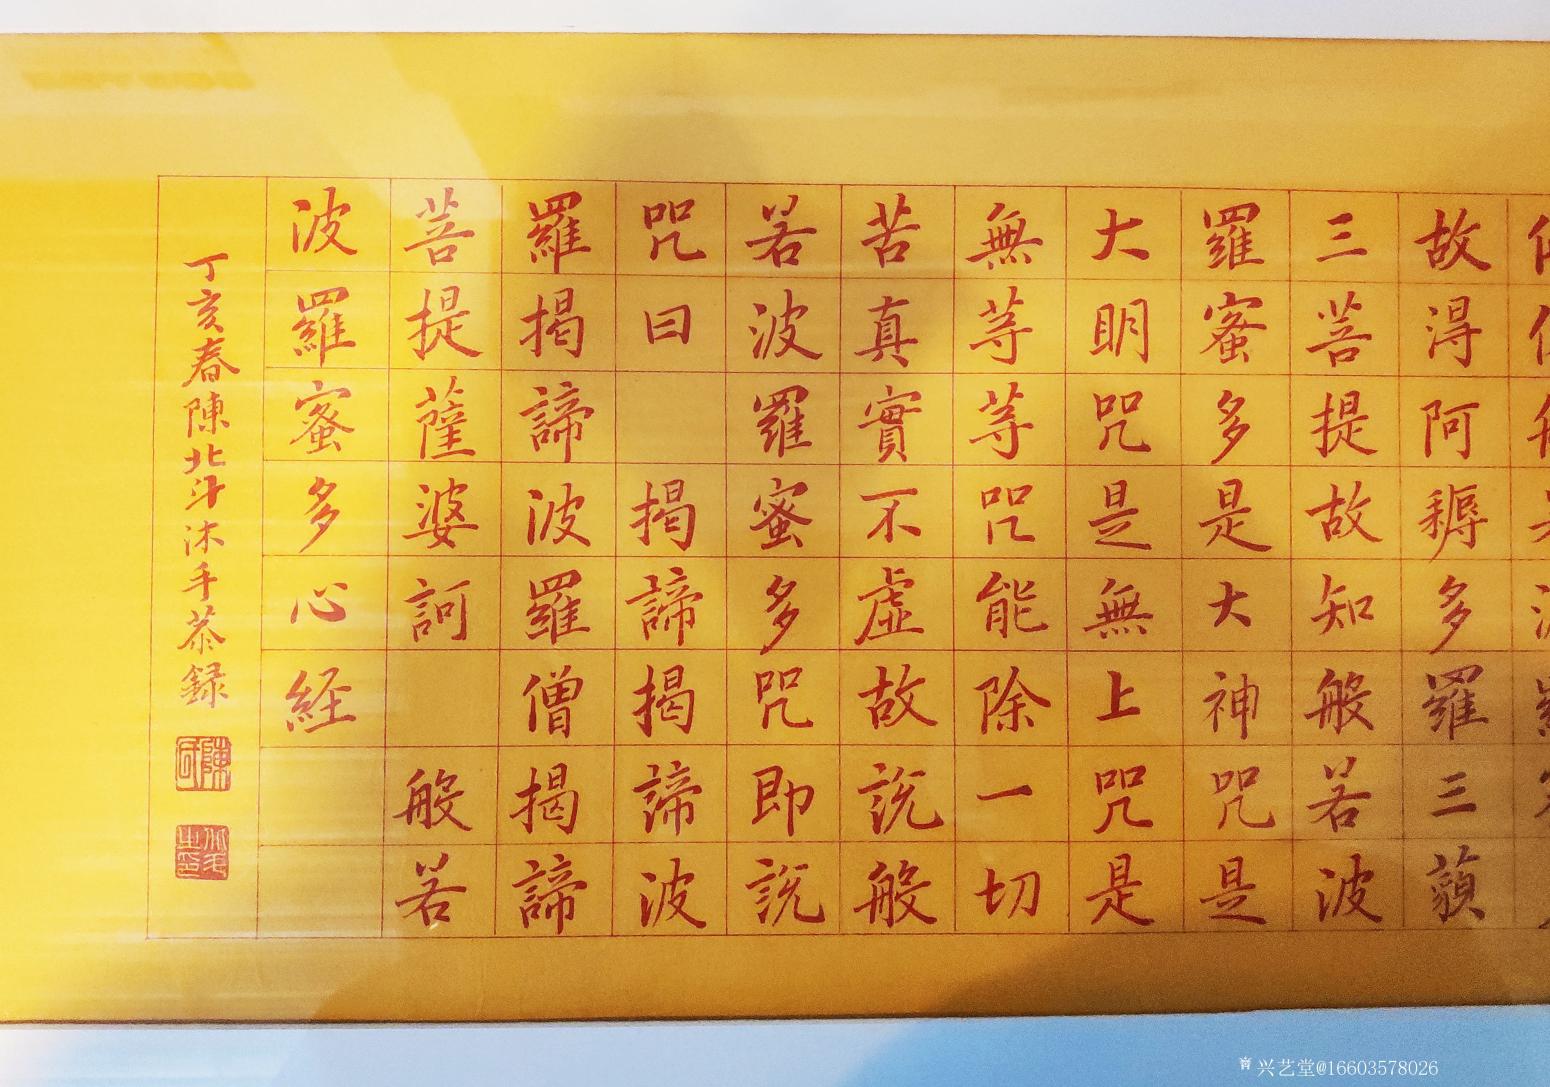 故得阿耨多羅三藐
三菩提故知般若波
羅蜜多是大神咒是
大明咒是無上咒是
無等等咒能除一切
苦真實不虛故說般
若波羅蜜多咒即說
咒曰 揭諦揭諦波
羅揭諦波羅僧揭諦
菩提薩婆訶 般若
波羅蜜多心経
丁亥春陳北斗沐手恭録
兴艺堂@16603578026